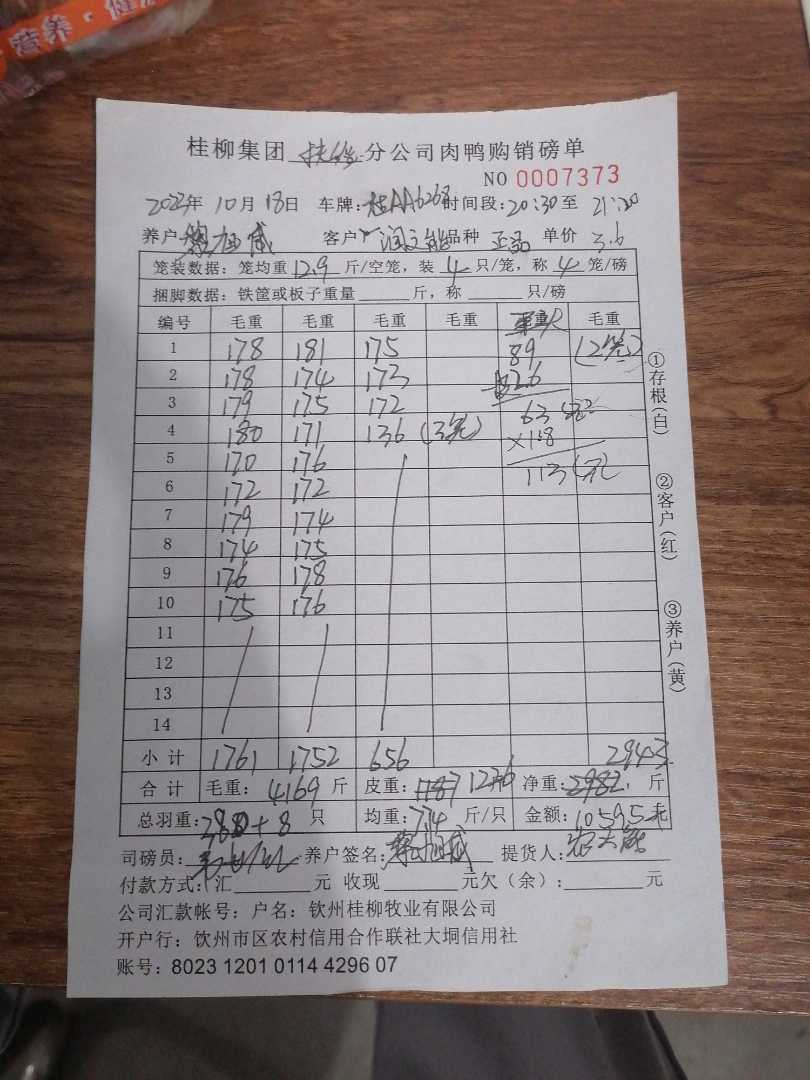 营养·健
桂柳集团 扶绥 分公司肉鸭购销磅单
NO 0007373
2023年 10月 18日 车牌: 桂AA6267 时间段: 20:30 至 21:20
养户 客户 品种 正品 单价 3.6
笼装数据: 笼均重 12.9 斤/空笼, 装 4 只/笼, 称 4 笼/磅
捆脚数据: 铁筐或板子重量 斤, 称 只/磅
编号 毛重 毛重 毛重 毛重 毛重
1 178 181 175 89 (2笼)
2 178 174 173 2.6
3 179 175 172 63
4 180 171 136 (3笼) ×1.8
5 170 176 113 (元)
6 172 172
7 179 174
8 174 175
9 176 178
10 175 176
11
12
13
14
小 计 1761 1752 656 2943
合 计 毛重: 4169 斤 皮重: 1187 1226 净重: 2982 斤
总羽重: 280+8 只 均重: 7.4 斤/只 金额: 10595元
司磅员: 养户签名: 提货人:
付款方式: 汇 元 收现 元欠(余): 元
公司汇款帐号: 户名: 钦州桂柳牧业有限公司
开户行: 饮州市区农村信用合作联社大垌信用社
账号: 8023 1201 0114 4296 07
①存根(白)
②客户(红)
③养户(黄)